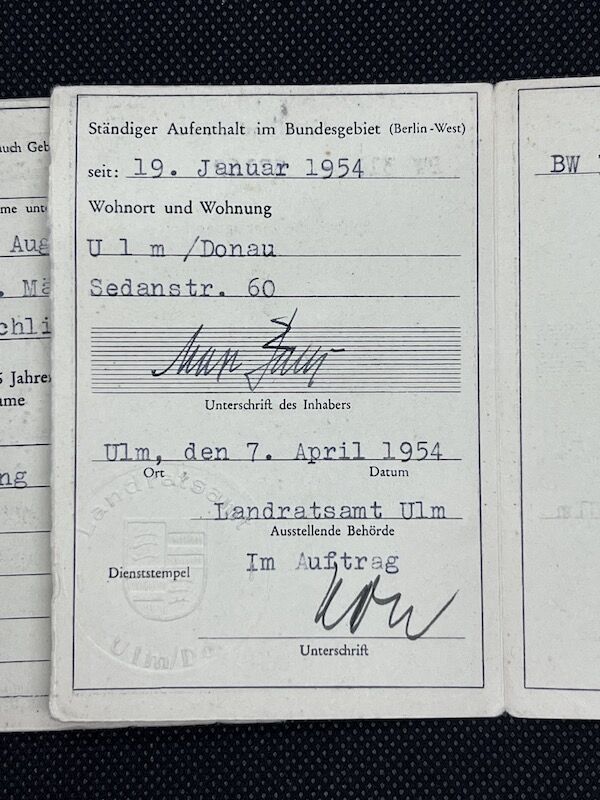 auch Geb
Aug
. Mä
chli
Jahre
ame
ng
Ständiger Aufenthalt im Bundesgebiet (Berlin-West)
seit: 19. Januar 1954
Wohnort und Wohnung
U l m /Donau
Sedanstr. 60
Unterschrift des Inhabers
Ulm, den 7. April 1954
Ort Datum
Landratsamt Ulm
Ausstellende Behörde
Im Auftrag
Dienststempel
Landratsamt
Ulm/Do
Unterschrift
BW